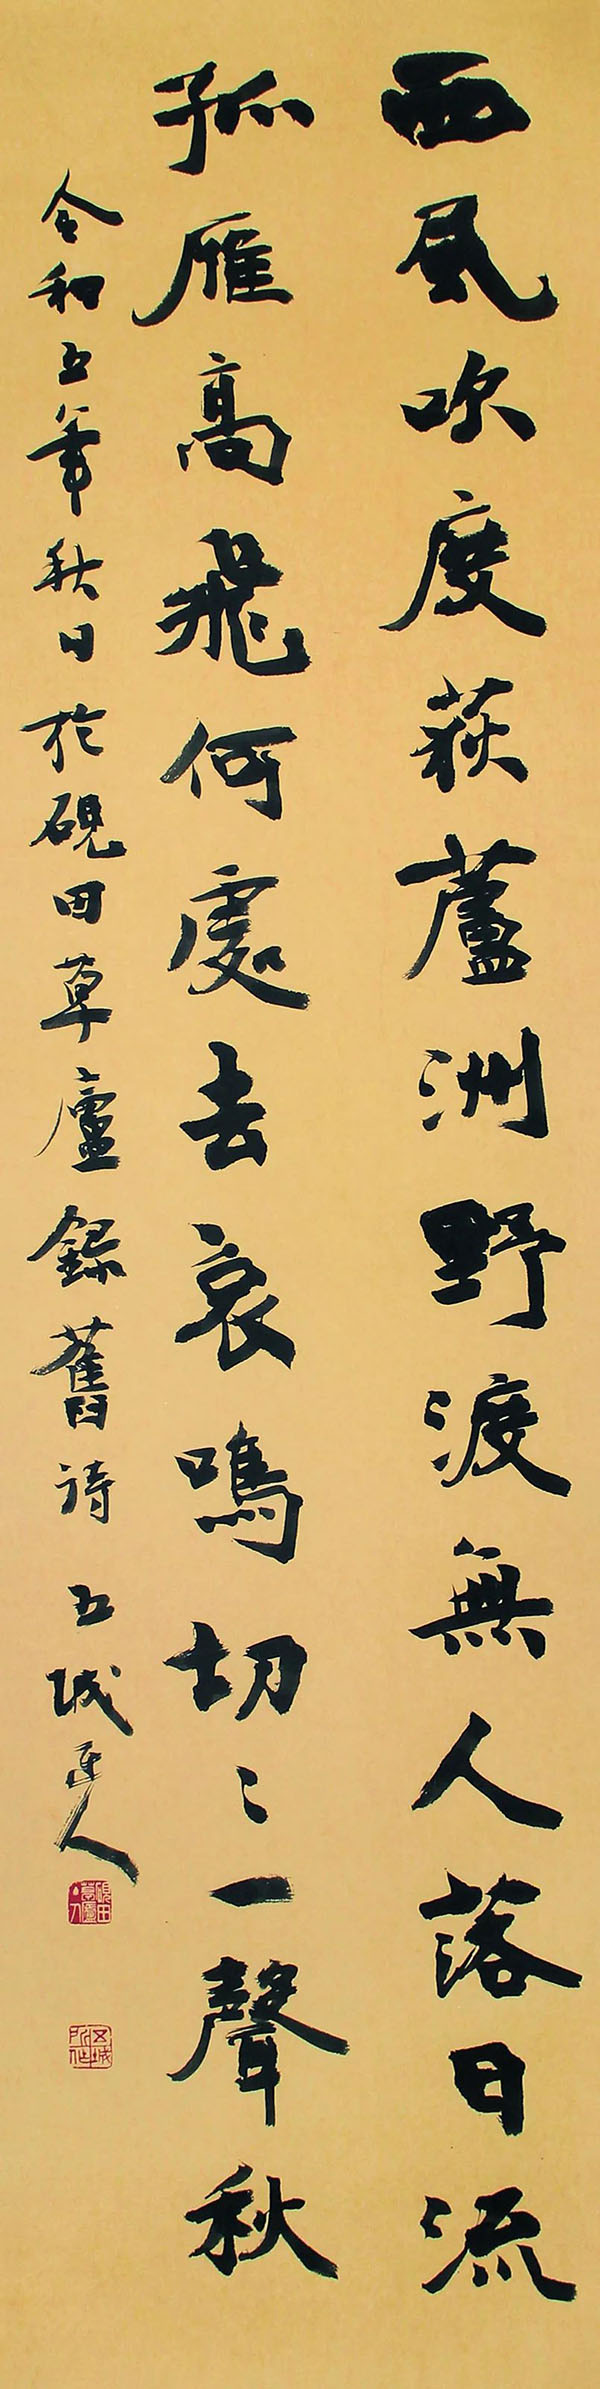 西風吹度荻蘆洲野渡無人落日流
孤雁高飛何處去哀鳴切〻一聲秋
令和五年秋日於硯田草廬錄舊詩 五城 人
硯田草廬 人
五城 所作